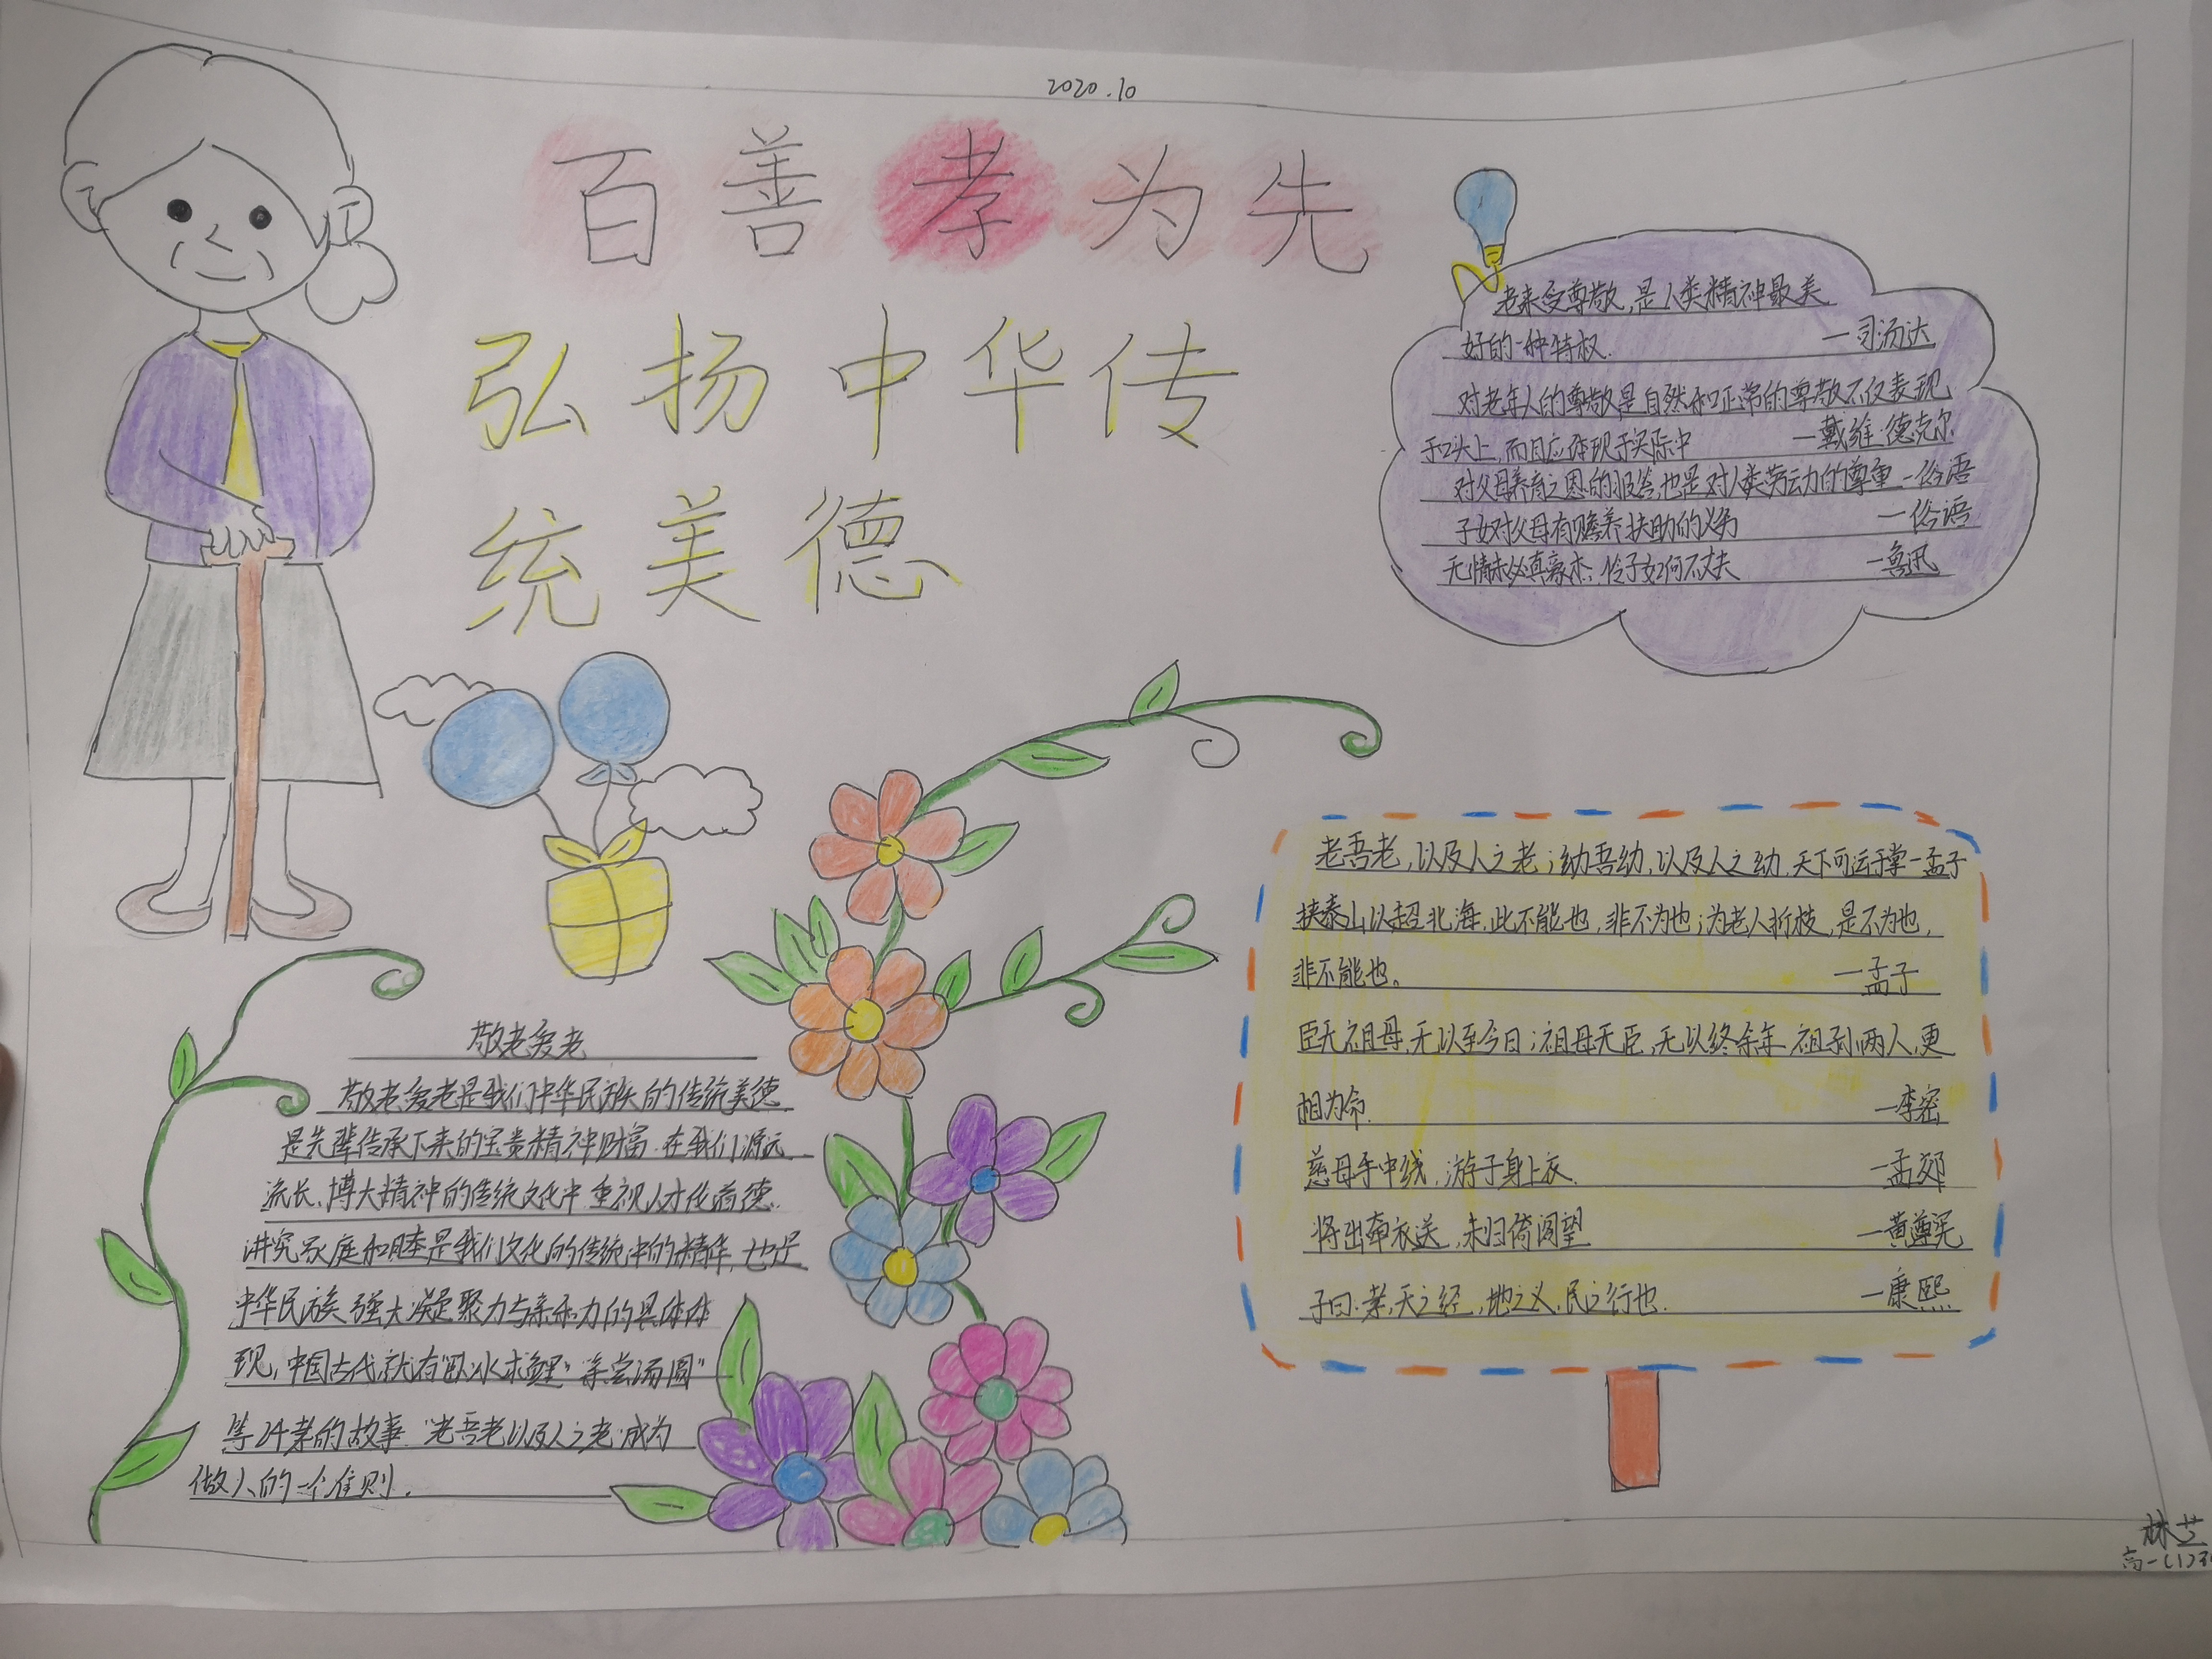 2020.10
百善孝为先
弘扬中华传
统美德
老来受尊敬,是人类精神最美
好的一种特权. —司汤达
对老年人的尊敬是自然和正常的尊敬不仅表现
于口头上,而且应体现于实际中 —戴维·德克尔
对父母养育之恩的报答,也是对人类劳动力的尊重 —俗语
子女对父母有赡养扶助的义务 —俗语
无情未必真豪杰;怜子如何不丈夫 —鲁迅
老吾老,以及人之老;幼吾幼,以及人之幼,天下可运于掌—孟子
挟泰山以超北海,此不能也,非不为也;为老人折枝,是不为也,
非不能也。 —孟子
臣无祖母,无以至今日;祖母无臣,无以终余年,祖孙两人,更
相为命. —李密
慈母手中线,游子身上衣. —孟郊
将出牵衣送,未归倚阁望 —黄遵宪
子曰:孝,天之经,地之义,民之行也. —康熙
敬老爱老
敬老爱老是我们中华民族的传统美德
是先辈传承下来的宝贵精神财富.在我们源远
流长、博大精神的传统文化中.重视人才伦道德、
讲究家庭和睦是我们文化的传统中的精华,也是
中华民族强大凝聚力与亲和力的具体体
现,中国古代就有"卧冰求鲤""亲尝汤圆"
等24孝的故事."老吾老以及人之老"成为
做人的一个准则.
林芝
高一(1)